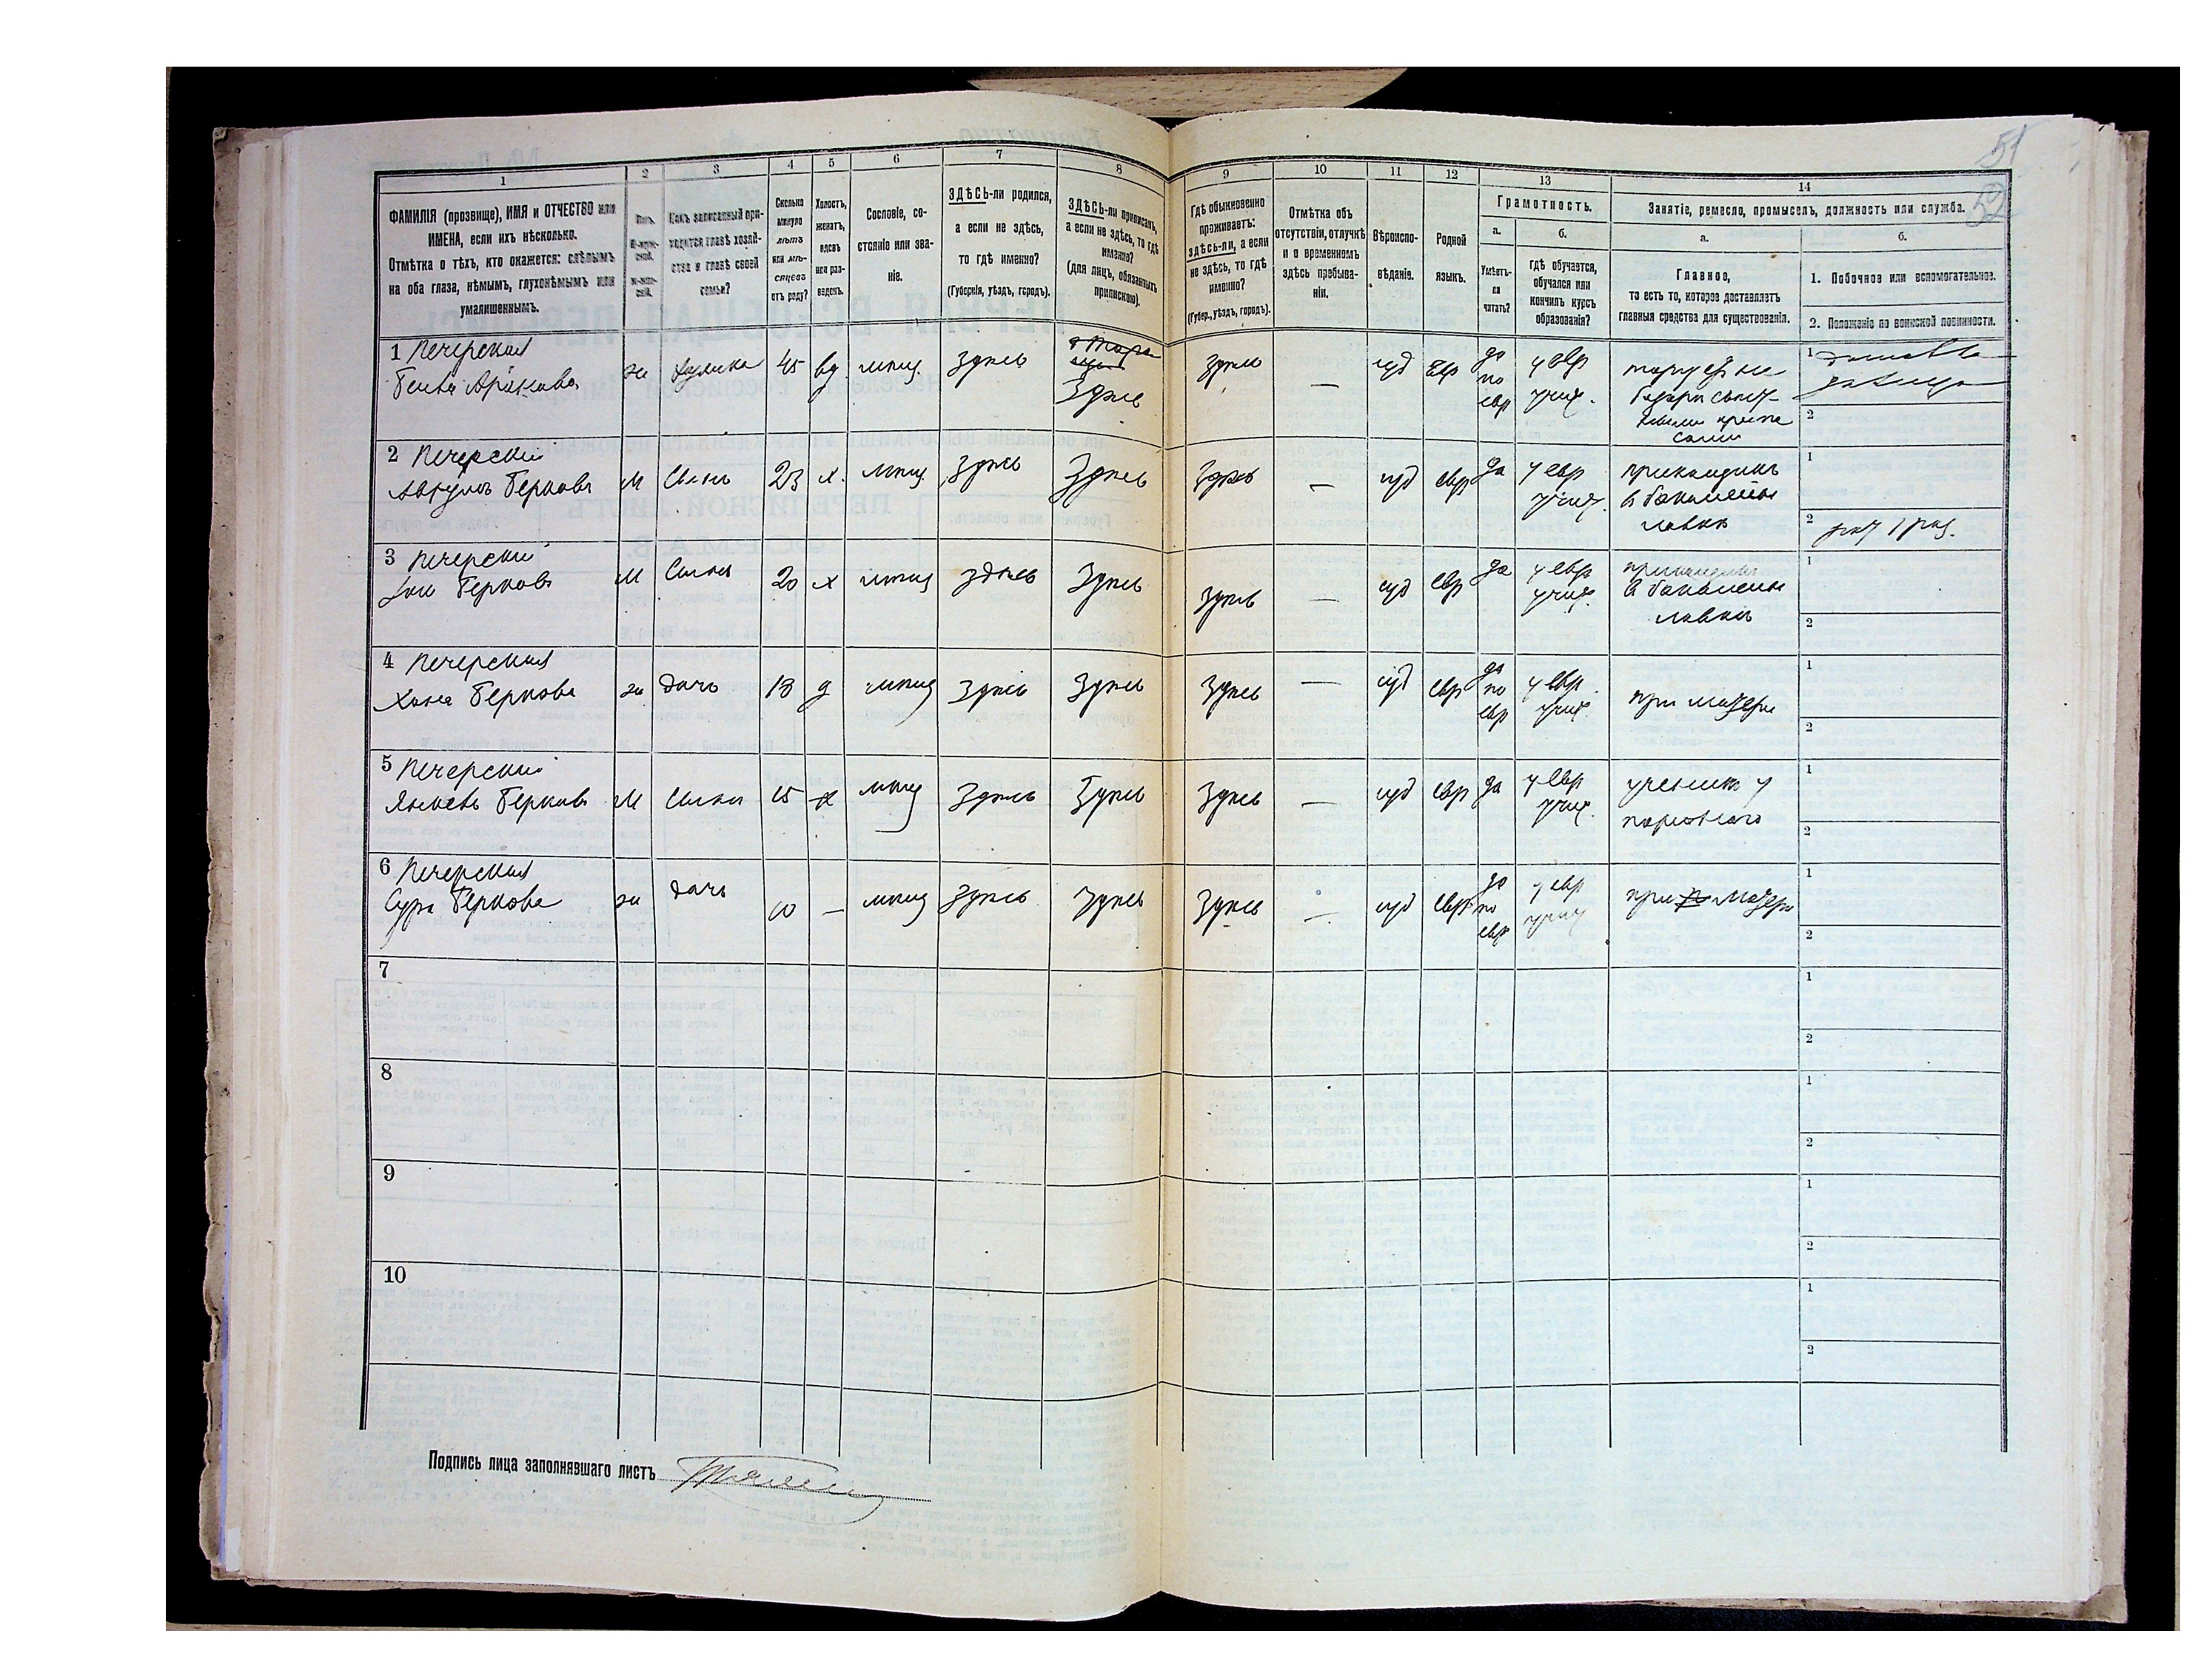 51
52
1
2
3
4
5
6
7
8
9
10
11
12
13
14
ФАМИЛІЯ (прозвище), ИМЯ и ОТЧЕСТВО или
ИМЕНА, если ихъ нѣсколько.
Отмѣтка о тѣхъ, кто окажется: слѣпымъ
на оба глаза, нѣмымъ, глухонѣмымъ или
умалишеннымъ.
Полъ.
М-муж-
ской.
Ж-жен-
скій.
Какъ записанный при-
ходится главѣ хозяй-
ства и главѣ своей
семьи?
Сколько
минуло
лѣтъ
или мѣ-
сяцевъ
отъ роду?
Холостъ,
женатъ,
вдовъ
или раз-
веденъ.
Сословіе, со-
стояніе или зва-
ніе.
ЗДѢСЬ-ли родился,
а если не здѣсь,
то гдѣ именно?
(Губернія, уѣздъ, городъ).
ЗДѢСЬ-ли приписанъ,
а если не здѣсь, то гдѣ
именно?
(для лицъ, обязанныхъ
припискою).
Гдѣ обыкновенно
проживаетъ:
здѣсь-ли, а если
не здѣсь, то гдѣ
именно?
(Губер., уѣздъ, городъ).
Отмѣтка объ
отсутствіи, отлучкѣ
и о временномъ
здѣсь пребыва-
ніи.
Вѣроиспо-
вѣданіе.
Родной
языкъ.
Грамотность.
а.
б.
Умѣетъ-
ли
читать?
гдѣ обучается,
обучался или
кончилъ курсъ
образованія?
Занятіе, ремесло, промыселъ, должность или служба.
а.
б.
Главное,
то есть то, которое доставляетъ
главныя средства для существованія.
1. Побочное или вспомогательное.
2. Положеніе по воинской повинности.
1 Печерская
ж 45 вд мѣщ. здѣсь
Здѣсь
здѣсь — іуд евр да
по
евр
у евр
учит.
1
2
2 Печерскій
Берковъ М Сынъ 23 х. мѣщ. здѣсь Здѣсь Здѣсь — іуд евр да у евр
учит.
прикащикъ
в бакалейн
лавкѣ
1
2 рат 1 раз.
3 Печерскій
Берковъ М Сынъ 20 х мѣщ здѣсь Здѣсь Здѣсь — іуд евр да у евр
учит.
прикащикъ
в бакалейн
лавкѣ
1
2
4 Печерская
Хана Беркова ж дочь 18 д мѣщ здѣсь Здѣсь Здѣсь — іуд евр да
по
евр
у евр
учит.
при матери
1
2
5 Печерскій
Янкель Берковъ М Сынъ 15 х мѣщ Здѣсь Здѣсь Здѣсь — іуд евр да у евр
учит.
ученикъ у
портного
1
2
6 Печерская
Сура Беркова ж дочь 10 — мѣщ Здѣсь Здѣсь Здѣсь — іуд евр да
по
евр
у евр
учит
при матери
1
2
7
1
2
8
1
2
9
1
2
10
1
2
Подпись лица заполнявшаго листъ